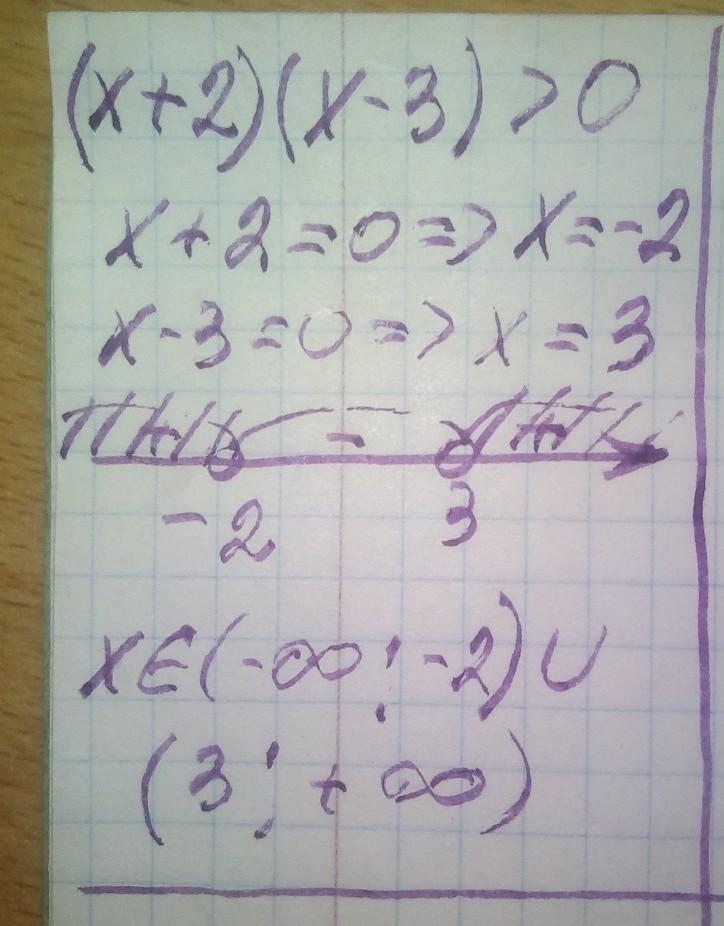 (x+2)(x-3)>0
x+2=0=>x=-2
x-3=0=>x=3
+ - +
-2 3
x∈(-∞;-2)∪
(3;+∞)